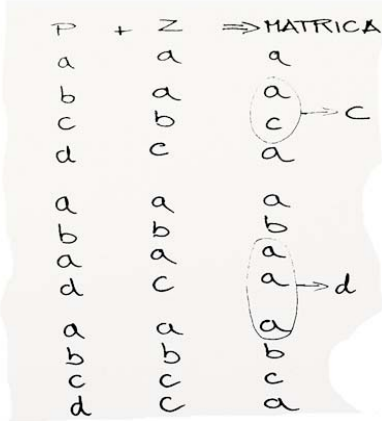 P + Z => MATRICA
a a a
b a a
c b c → c
d c a
a a a
b b b
a a a
d c a → d
a a a
b b b
c c c
d c a